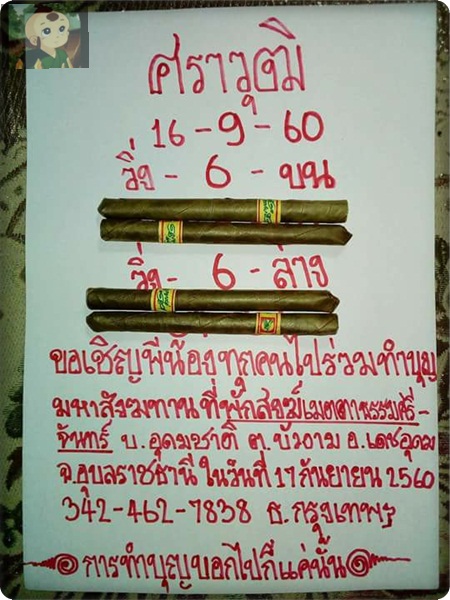 ศราวุฒิ
16-9-60
วิ่ง - 6 - บน
วิ่ง - 6 - ล่าง
ขอเชิญพี่น้องทุกคนไปร่วมทำบุญ
มหาสังฆทาน ที่พักสงฆ์เมตตาธรรมศรี-
จันทร์ บ.อุดมชาติ ต.บัวงาม อ.เดชอุดม
จ.อุบลราชธานี ในวันที่ 17 กันยายน 2560
342-462-7838 ธ.กรุงเทพฯ
การทำบุญบอกไปกี้แค่นั้น